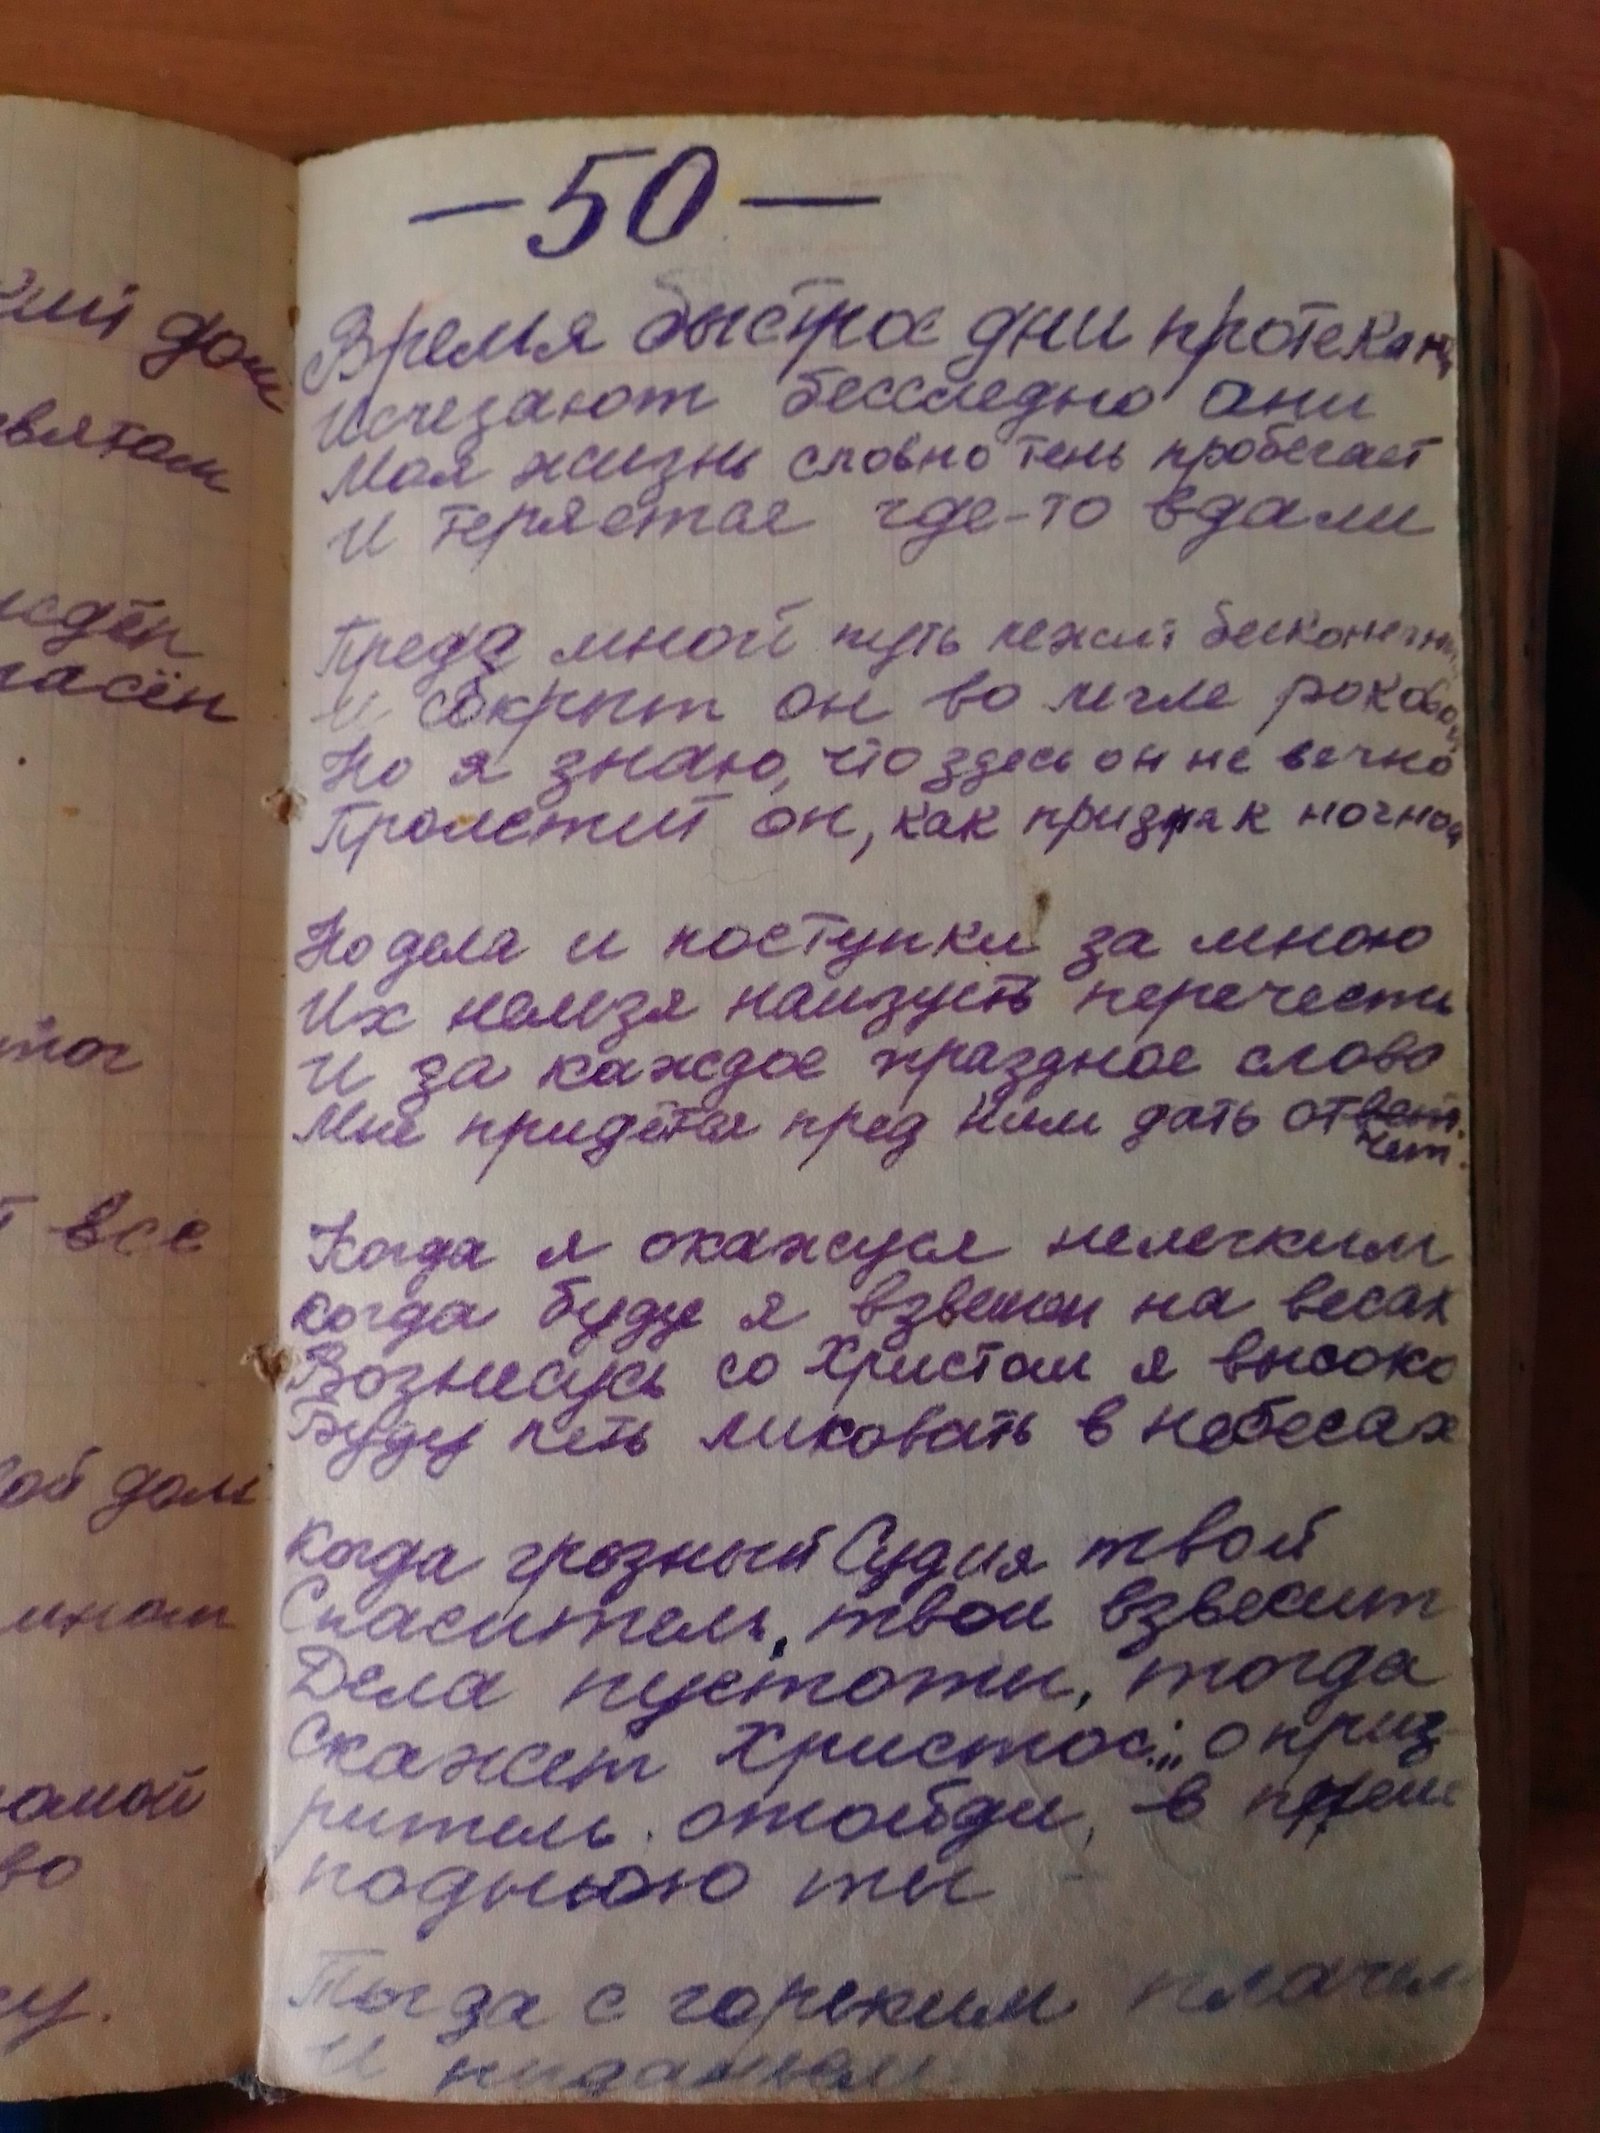 кий дом
святом
ждён
пасён
тог
т все
ой дом
мном
амой
во
су.
— 50 —
Время быстрое дни протекают
Исчезают бесследно они
Моя жизнь словно тень пробегает
И теряется где-то вдали
Предо мной путь лежит бесконечный
И сокрыт он во мгле роковой
Но я знаю, что здесь он не вечно
Пролетит он, как призрак ночной
Но дела и поступки за мною
Их нельзя наизусть перечесть
И за каждое праздное слово
Мне придётся пред Ним дать ответ.
чет.
Когда я окажуся нелегким
когда буду я взвешон на весах
Вознесусь со Христом я высоко
Буду петь ликовать в небесах
Когда грозный Судия твой
Спаситель, твои взвесит
Дела пустоты, тогда
Скажет Христос: „о приз
ритель отойди, в преис
поднюю ты
Тогда с горьким плачем
И